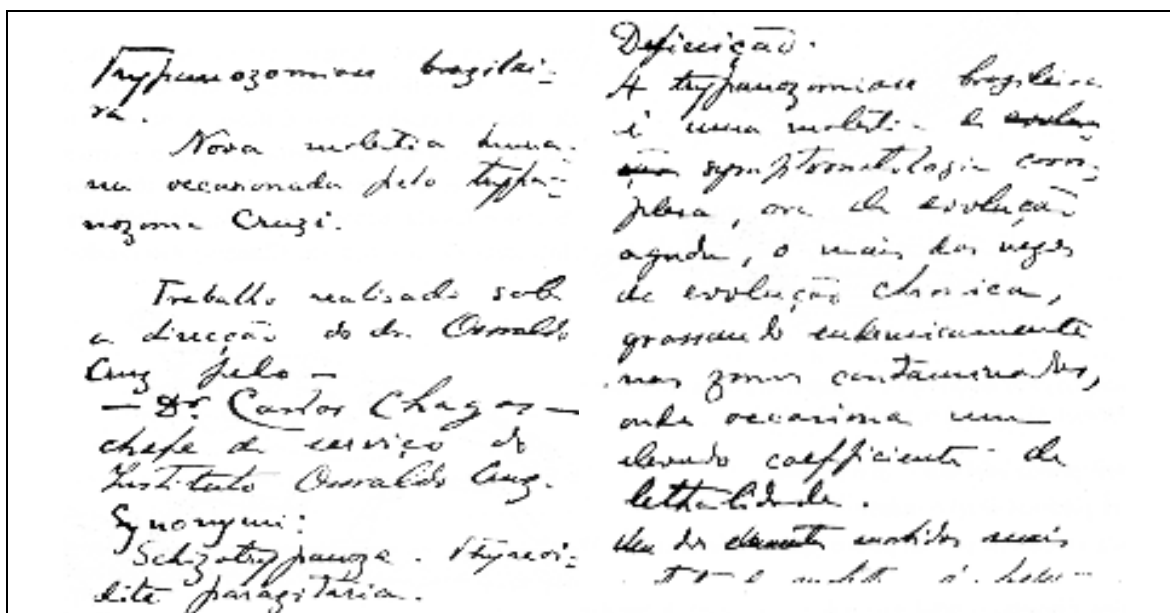 Trypanozomiase brazilei-
ra.
Nova molestia huma-
na occasionada pelo trypa-
nozoma Cruzi.
Trabalho realisado sob
a direcção do dr. Oswaldo
Cruz pelo —
— Dr. Carlos Chagas —
chefe de serviço do
Instituto Oswaldo Cruz.
Synonymi:
Schizotrypanoza. Thyreoi-
dite parazitaria.
Definição.
A trypanozomiase brazileira
é uma molestia de evolu
ção symptomatologia com-
plexa, ora de evolução
aguda, o mais das vezes
de evolução chronica,
grassando endemicamente
nas zonas contaminadas,
onde occasiona um
elevado coefficiente de
lethalidade.
Um dos morbidos mais